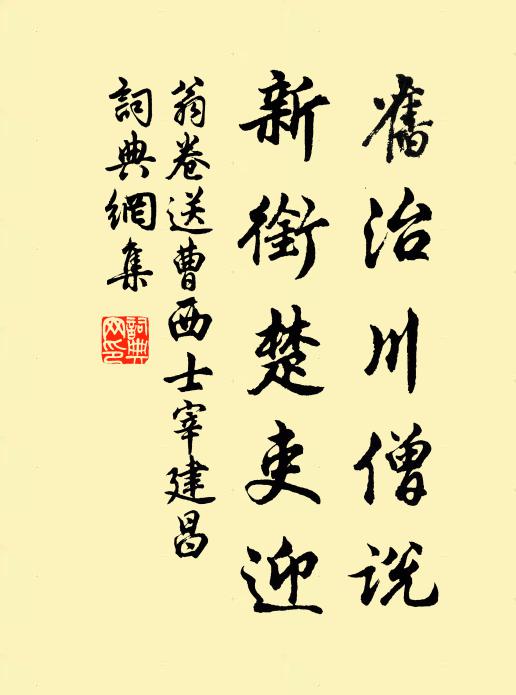 舊治川僧説
新銜楚吏迎
翁卷送曹西士宰建昌
詞典網集
詞典網印